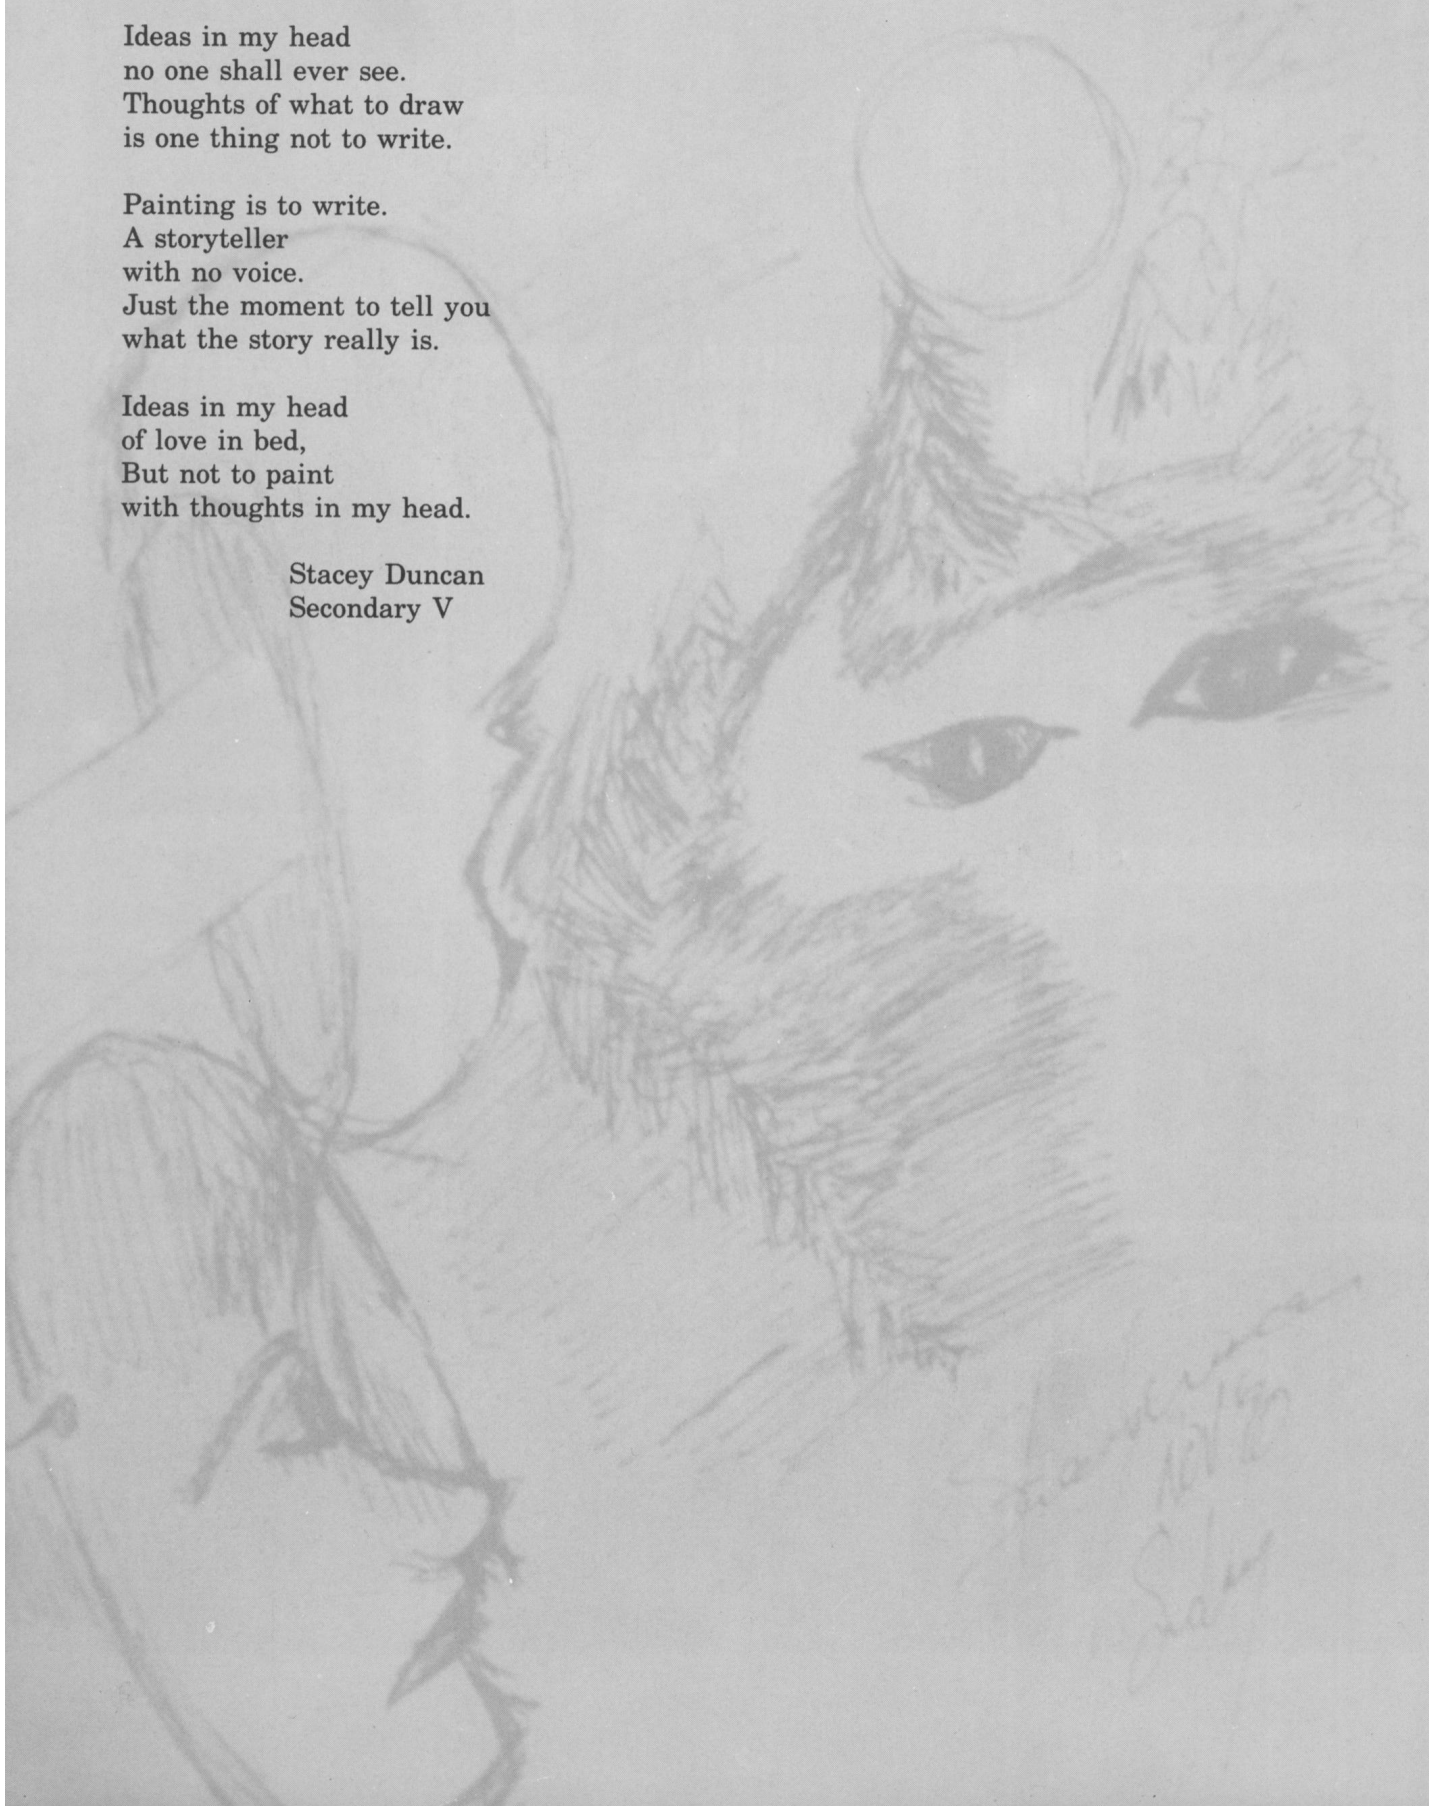 Ideas in my head
no one shall ever see.
Thoughts of what to draw
is one thing not to write.

Painting is to write.
A storyteller
with no voice.
Just the moment to tell you
what the story really is.

Ideas in my head
of love in bed,
But not to paint
with thoughts in my head.

Stacey Duncan
Secondary V